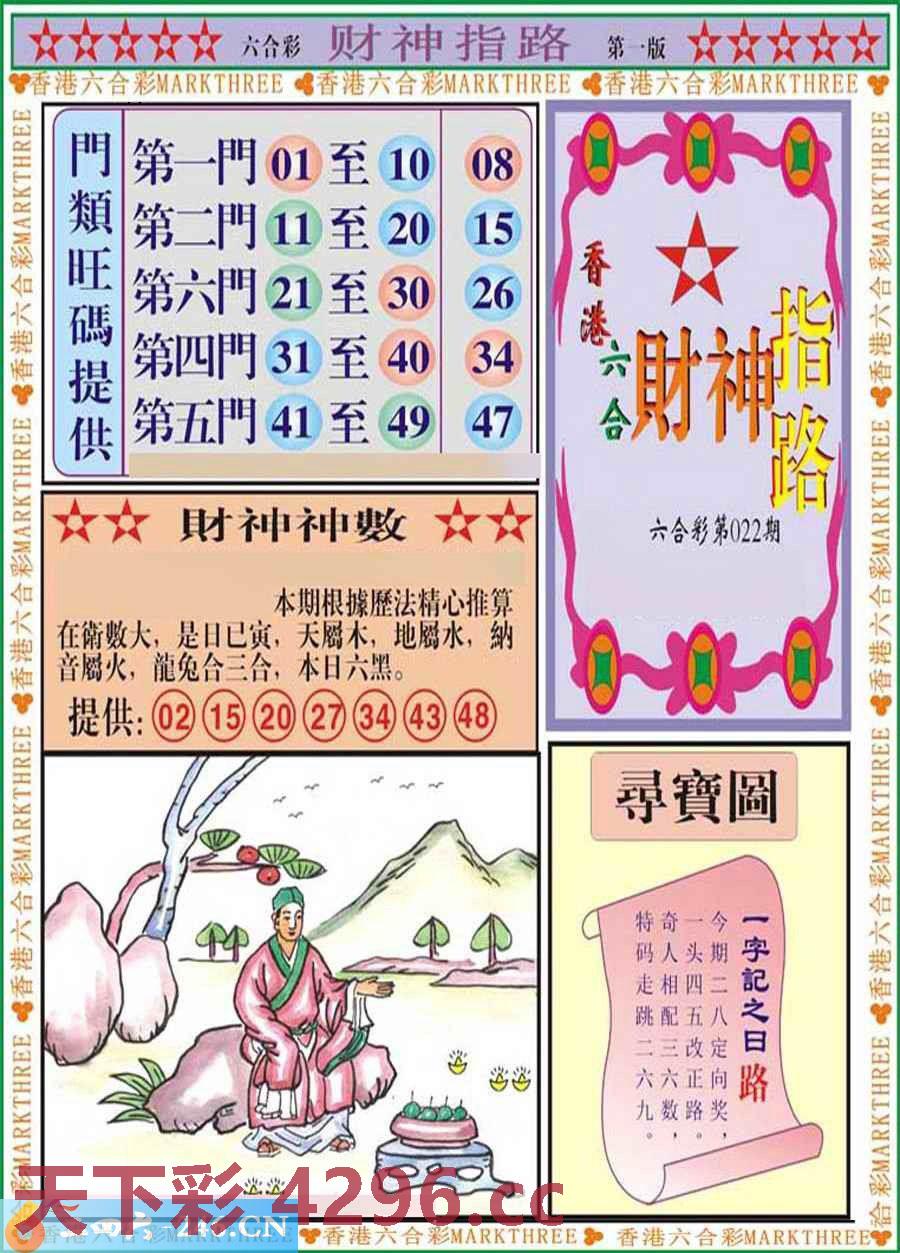 六合彩 财神指路 第一版
香港六合彩MARKTHREE 香港六合彩MARKTHREE 香港六合彩MARKTHREE
門類旺碼提供
第一門 01 至 10 08
第二門 11 至 20 15
第六門 21 至 30 26
第四門 31 至 40 34
第五門 41 至 49 47
香港六合
財神指路
六合彩第022期
財神神數
本期根據歷法精心推算
在衛數大，是日已寅，天屬木，地屬水，納
音屬火，龍兔合三合，本日六黑。
提供: 02 15 20 27 34 43 48
尋寶圖
一字記之日 路
今期二八定向奖，
一头四五改正路。
奇人相配三六数，
特码走跳二六九。
天下彩 4296.cc
香港六合彩MARKTHREE 香港六合彩MARKTHREE